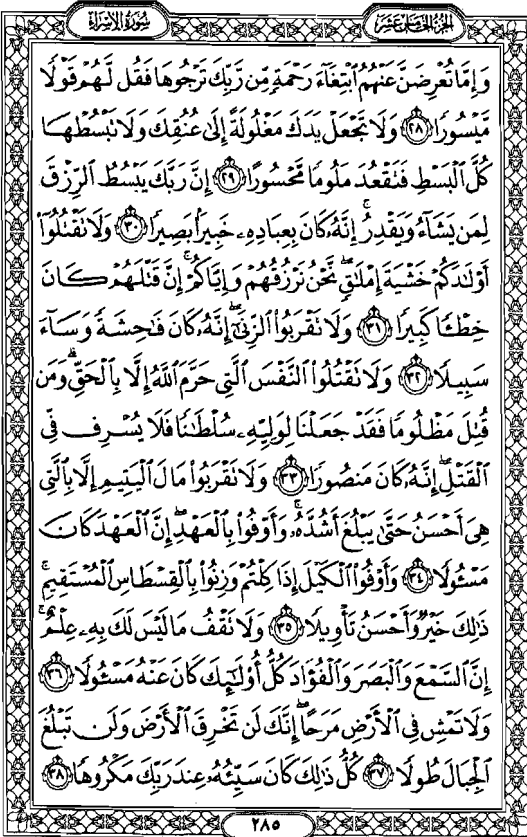 سورة الإسراء
الجزء الخامس عشر
وَإِمَّا تُعْرِضَنَّ عَنْهُمُ ٱبْتِغَآءَ رَحْمَةٍ مِّن رَّبِّكَ تَرْجُوهَا فَقُل لَّهُمْ قَوْلًا
مَّيْسُورًا ٢٨ وَلَا تَجْعَلْ يَدَكَ مَغْلُولَةً إِلَىٰ عُنُقِكَ وَلَا تَبْسُطْهَا
كُلَّ ٱلْبَسْطِ فَتَقْعُدَ مَلُومًا مَّحْسُورًا ٢٩ إِنَّ رَبَّكَ يَبْسُطُ ٱلرِّزْقَ
لِمَن يَشَآءُ وَيَقْدِرُ ۚ إِنَّهُۥ كَانَ بِعِبَادِهِۦ خَبِيرًۢا بَصِيرًا ٣٠ وَلَا تَقْتُلُوٓا۟
أَوْلَٰدَكُمْ خَشْيَةَ إِمْلَٰقٍ ۖ نَّحْنُ نَرْزُقُهُمْ وَإِيَّاكُمْ ۚ إِنَّ قَتْلَهُمْ كَانَ
خِطْـًٔا كَبِيرًا ٣١ وَلَا تَقْرَبُوا۟ ٱلزِّنَىٰٓ ۖ إِنَّهُۥ كَانَ فَٰحِشَةً وَسَآءَ
سَبِيلًا ٣٢ وَلَا تَقْتُلُوا۟ ٱلنَّفْسَ ٱلَّتِى حَرَّمَ ٱللَّهُ إِلَّا بِٱلْحَقِّ ۗ وَمَن
قُتِلَ مَظْلُومًا فَقَدْ جَعَلْنَا لِوَلِيِّهِۦ سُلْطَٰنًا فَلَا يُسْرِف فِّى
ٱلْقَتْلِ ۖ إِنَّهُۥ كَانَ مَنصُورًا ٣٣ وَلَا تَقْرَبُوا۟ مَالَ ٱلْيَتِيمِ إِلَّا بِٱلَّتِى
هِىَ أَحْسَنُ حَتَّىٰ يَبْلُغَ أَشُدَّهُۥ ۚ وَأَوْفُوا۟ بِٱلْعَهْدِ ۖ إِنَّ ٱلْعَهْدَ كَانَ
مَسْـُٔولًا ٣٤ وَأَوْفُوا۟ ٱلْكَيْلَ إِذَا كِلْتُمْ وَزِنُوا۟ بِٱلْقِسْطَاسِ ٱلْمُسْتَقِيمِ ۚ
ذَٰلِكَ خَيْرٌ وَأَحْسَنُ تَأْوِيلًا ٣٥ وَلَا تَقْفُ مَا لَيْسَ لَكَ بِهِۦ عِلْمٌ ۚ
إِنَّ ٱلسَّمْعَ وَٱلْبَصَرَ وَٱلْفُؤَادَ كُلُّ أُو۟لَٰٓئِكَ كَانَ عَنْهُ مَسْـُٔولًا ٣٦
وَلَا تَمْشِ فِى ٱلْأَرْضِ مَرَحًا ۖ إِنَّكَ لَن تَخْرِقَ ٱلْأَرْضَ وَلَن تَبْلُغَ
ٱلْجِبَالَ طُولًا ٣٧ كُلُّ ذَٰلِكَ كَانَ سَيِّئُهُۥ عِندَ رَبِّكَ مَكْرُوهًا ٣٨
٢٨٥